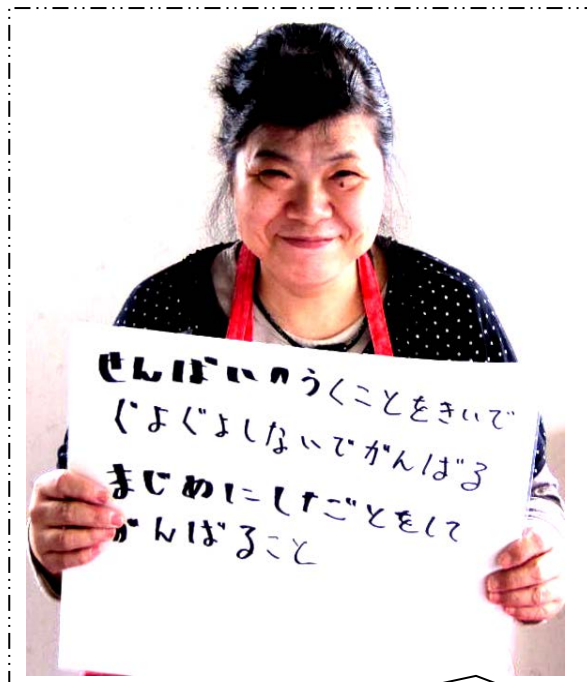 せんぱいのうくことをきいで
ぐよぐよしないでがんばる
まじめにしたごとをして
がんばること